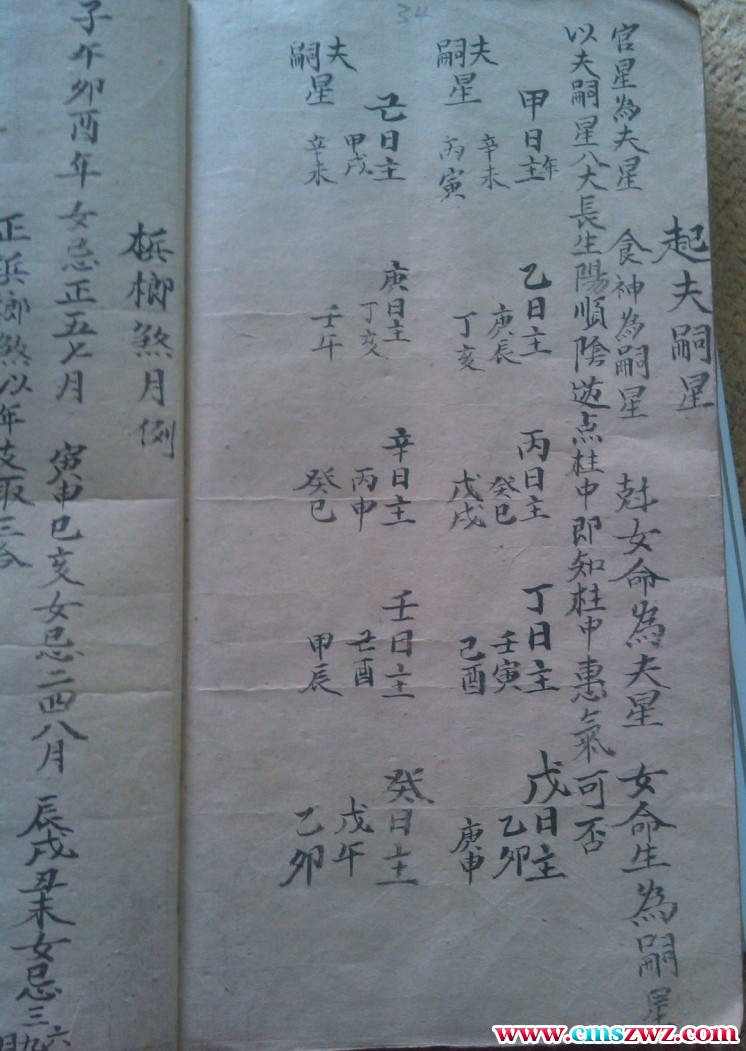 34
起夫嗣星
官星為夫星 食神為嗣星 尅女命為夫星 女命生為嗣星
以夫嗣星八大長生陽順陰逆点柱中即知柱中惠氣可否
甲日主年 乙日主 丙日主 丁日主 戊日主
夫 辛未 庚辰 癸巳 壬寅 乙卯
嗣星 丙寅 丁亥 戊戌 己酉 庚申
己日主 庚日主 辛日主 壬日主 癸日主
夫 甲戌 丁亥 丙申 己酉 戊午
嗣星 辛未 壬午 癸巳 甲辰 乙卯
梹榔煞月例
子午卯酉年女忌正五七月 寅申巳亥女忌二四八月 辰戌丑未女忌三六九月
正梹榔煞以年支取三合
www.cmszwz.com